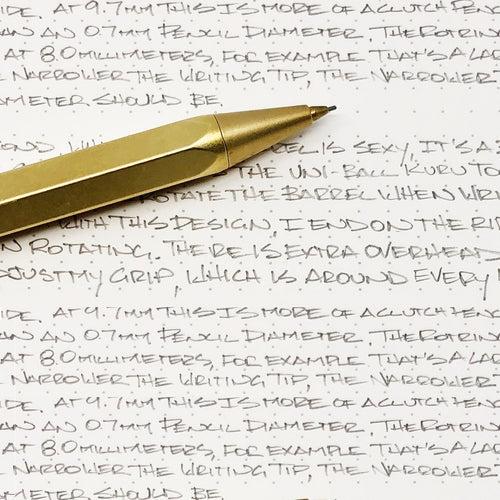 IDE. AT 9.7MM THIS IS MORE OF A CLUTCH PENC
AN AN 0.7MM PENCIL DIAMETER. THE ROTRING
AT 8.0 MILLIMETERS, FOR EXAMPLE THAT'S A LAR
NARROWER THE WRITING TIP, THE NARROWER
AMETER SHOULD BE.
OND, WH REL IS SEXY, IT'S A
THE UNI-BALL KURU TO
ROTATE THE BARREL WHEN WRI
WITH THIS DESIGN, I END ON THE RI
N ROTATING. THERE IS EXTRA OVERHEAD
DJUST MY GRIP, WHICH IS AROUND EVERY
IDE. AT 9.7MM THIS IS MORE OF A CLUTCH PENC
AN AN 0.7MM PENCIL DIAMETER. THE ROTRING
AT 8.0 MILLIMETERS, FOR EXAMPLE THAT'S A LAR
NARROWER THE WRITING TIP, THE NARROWER
IDE. AT 9.7MM THIS IS MORE OF A CLUTCH PENC
AN AN 0.7MM PENCIL DIAMETER. THE ROTRING
AT 8.0 MILLIMETERS, FOR EXAMPLE THAT'S A LAR
NARROWER THE WRITING TIP, THE NARROWER
AMETER SHOULD BE.